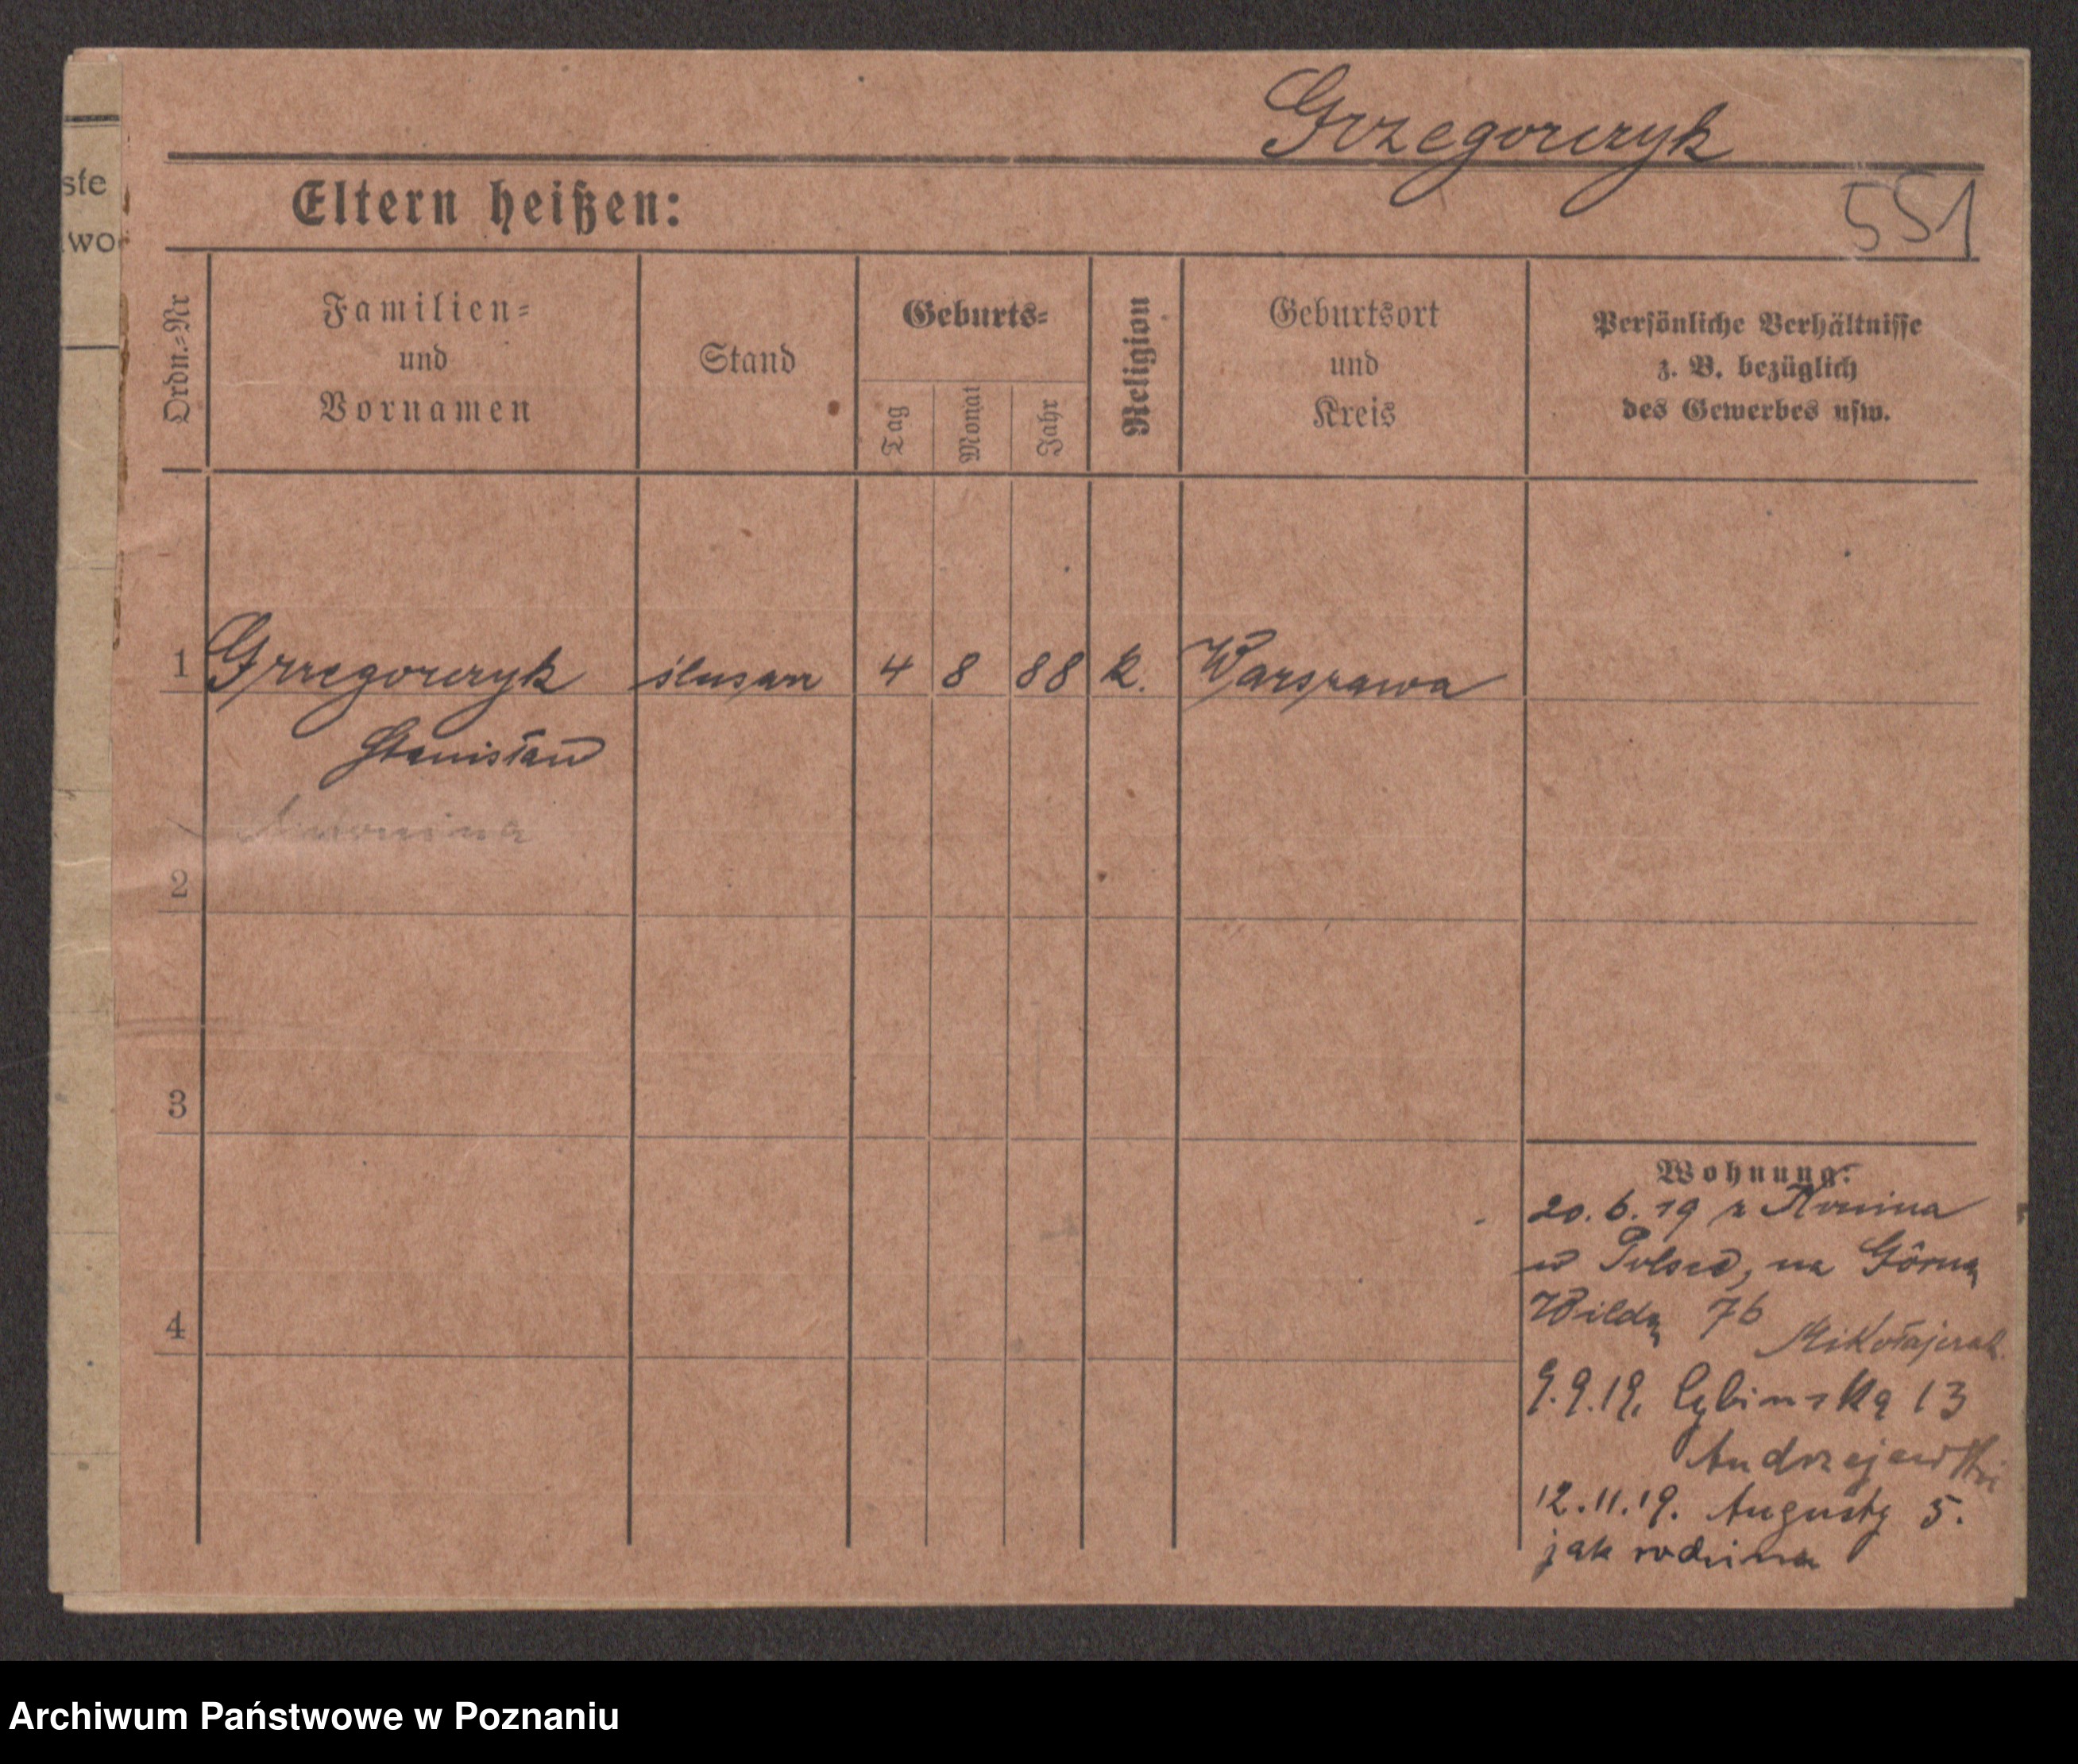 Grzegorczyk
ste
wo
Eltern heißen:
551
Ordn.-Nr
Familien-
und
Vornamen
Stand
Geburts-
Tag
Monat
Jahr
Religion
Geburtsort
und
Kreis
Persönliche Verhältnisse
z. B. bezüglich
des Gewerbes usw.
1 Grzegorczyk ślusarz 4 8 88 k. Warszawa
Stanisław
2
3
4
Wohnung:
20.6.19 z Konina
w Polsce, na Górną
Wildę 76
Mikołajczak
9.9.19. Cybinską 13
Andrzejewski
12.11.19. Augusty 5.
jak rodzina
Archiwum Państwowe w Poznaniu